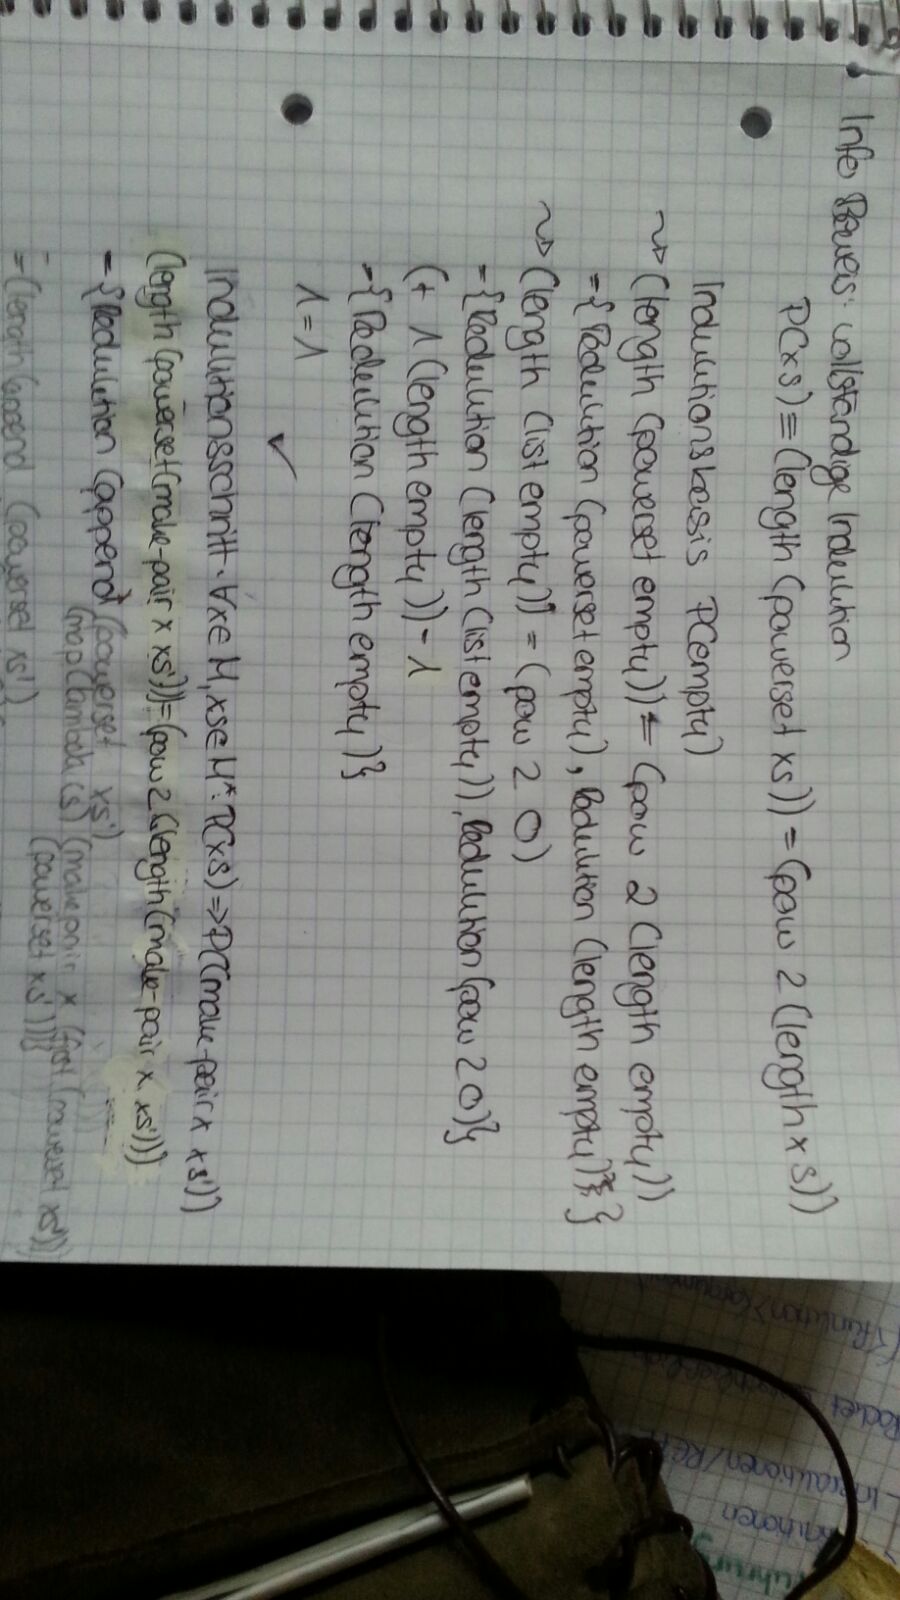 Info Beweis: vollständige Induktion
P(xs) ≡ (length (powerset xs)) = (pow 2 (length xs))
Induktionsbasis P(empty)
~> (length (powerset empty)) = (pow 2 (length empty))
= {Reduktion (powerset empty), Reduktion (length empty)}}
~> (length (list empty)) = (pow 2 0)
= {Reduktion (length (list empty)), Reduktion (pow 2 0)}
(+ 1 (length empty)) = 1
= {Reduktion (length empty)}
1 = 1
✓
Induktionsschritt: ∀x∈M, xs∈M*: P(xs) => P(make-pair x xs'))
(length (powerset (make-pair x xs'))) = (pow 2 (length (make-pair x xs')))
= {Reduktion (append (powerset xs')
(map (lambda (s) (make-pair x (first (powerset xs')))
(powerset xs'))}
= (length (append (powerset xs')